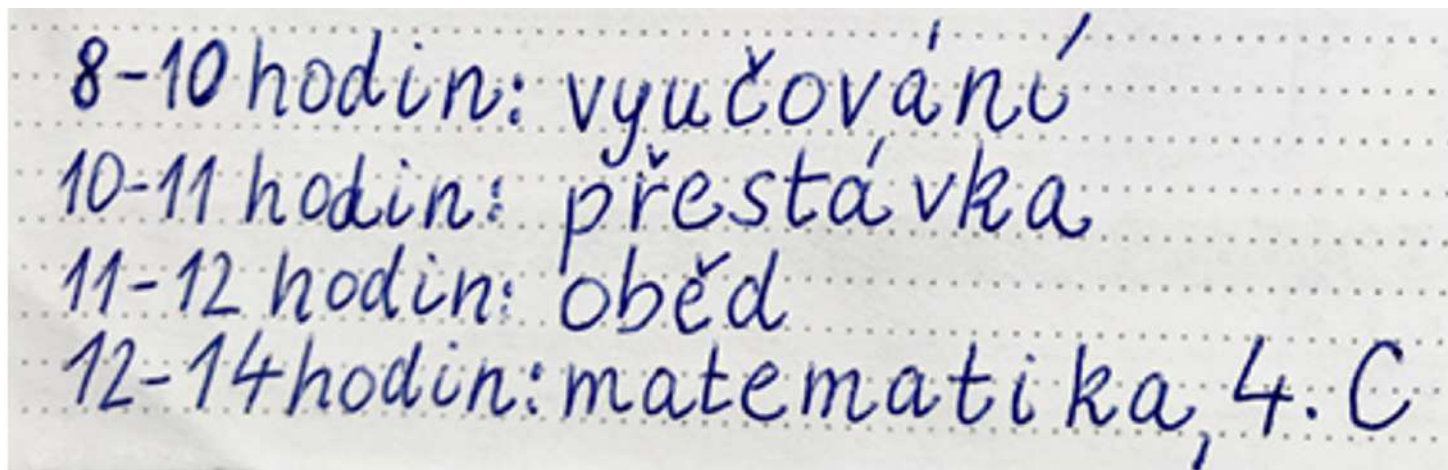 8-10 hodin: vyučování
10-11 hodin: přestávka
11-12 hodin: oběd
12-14 hodin: matematika, 4. C